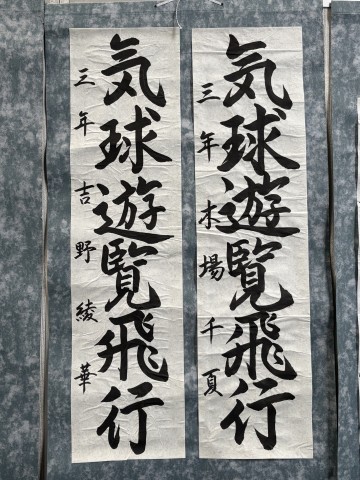 気球遊覧飛行
三年木場千夏
気球遊覧飛行
三年吉野綾華